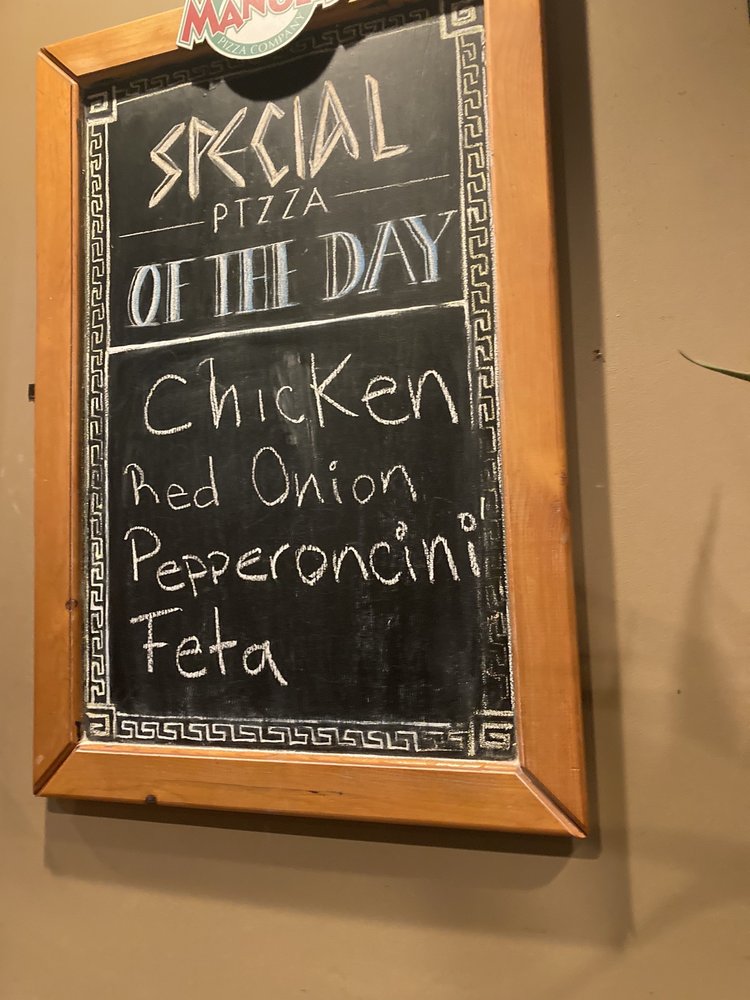 PIZZA COMPANY
SPECIAL
PIZZA
OF THE DAY
Chicken
Red Onion
Pepperoncini
Feta